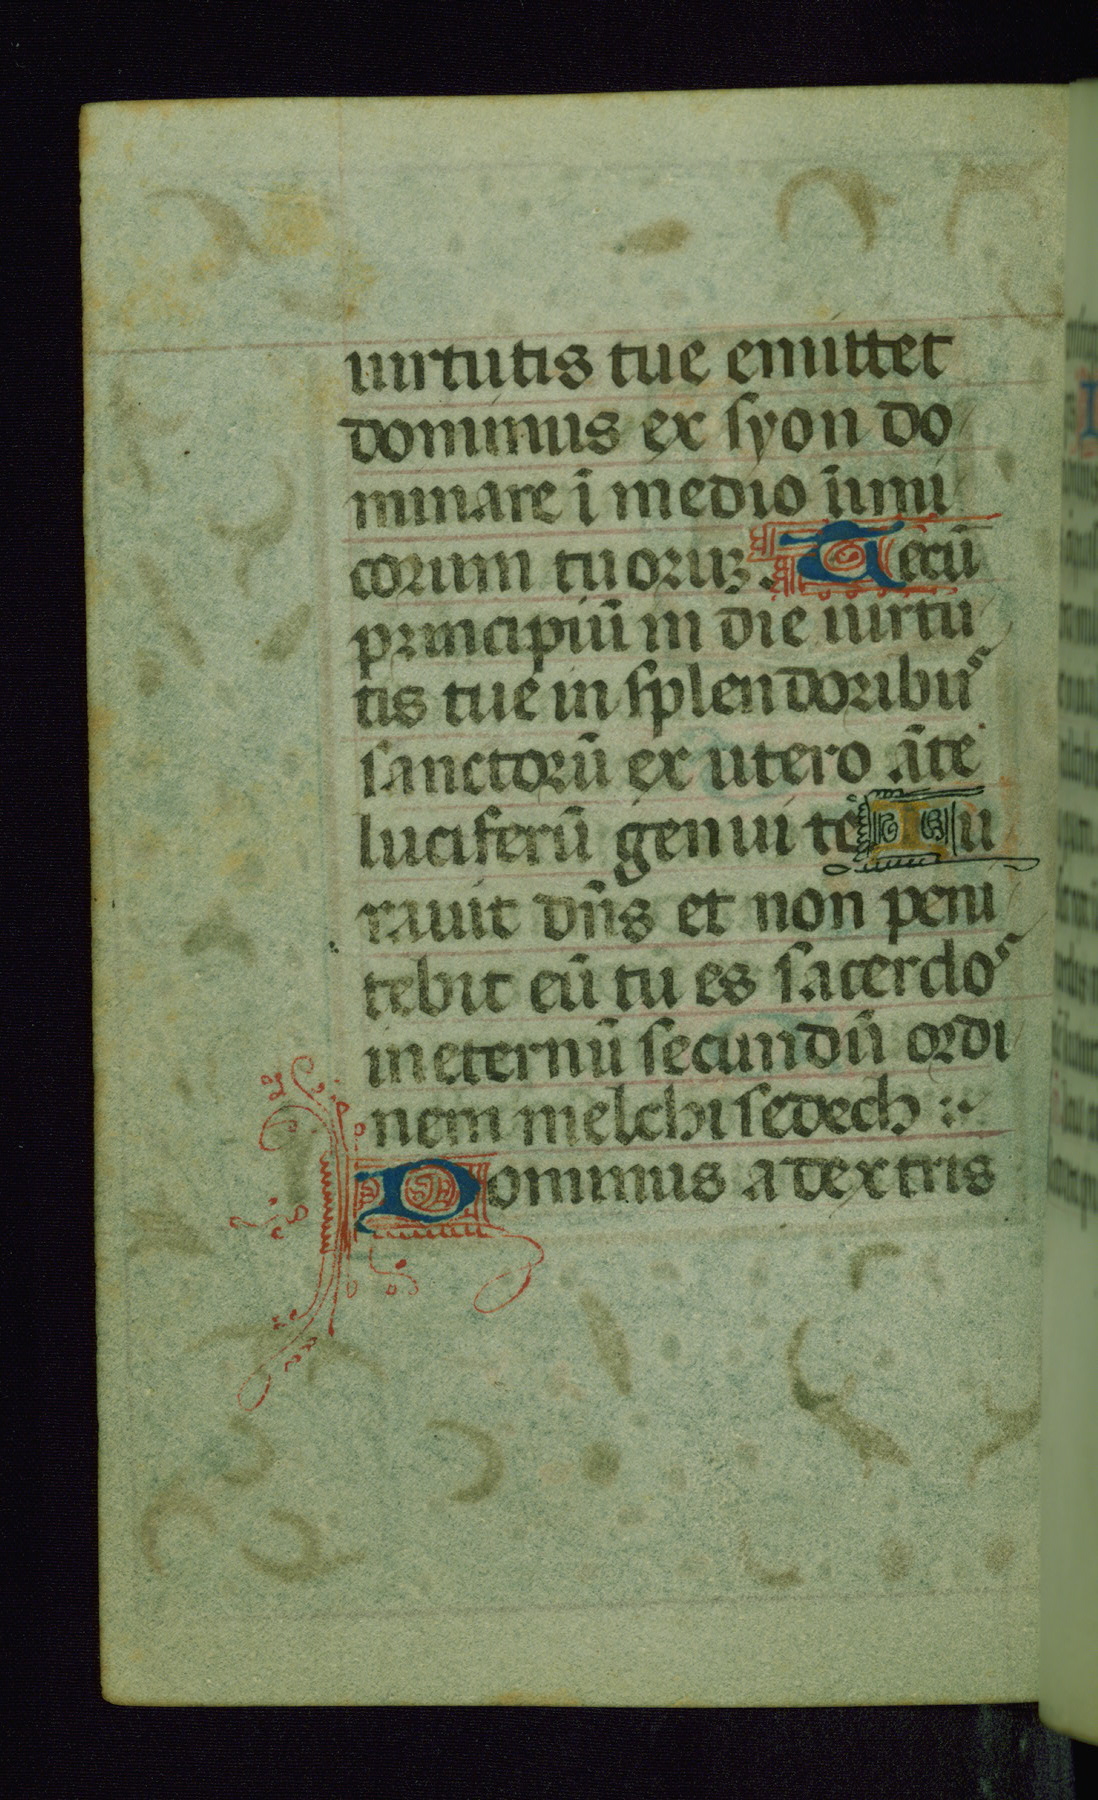 uirtutis tue emittet
dominus ex syon do
minare ī medio inimi
corum tuoruꝫ. Tecū
principiū in die uirtu
tis tue in splendoribus
sanctorū ex utero āte
luciferū genui te Iu
rauit dn̄s et non peni
tebit eū tu es sacerdos
in eternū secundū ordi
nem melchisedech :~
Dominus a dextris